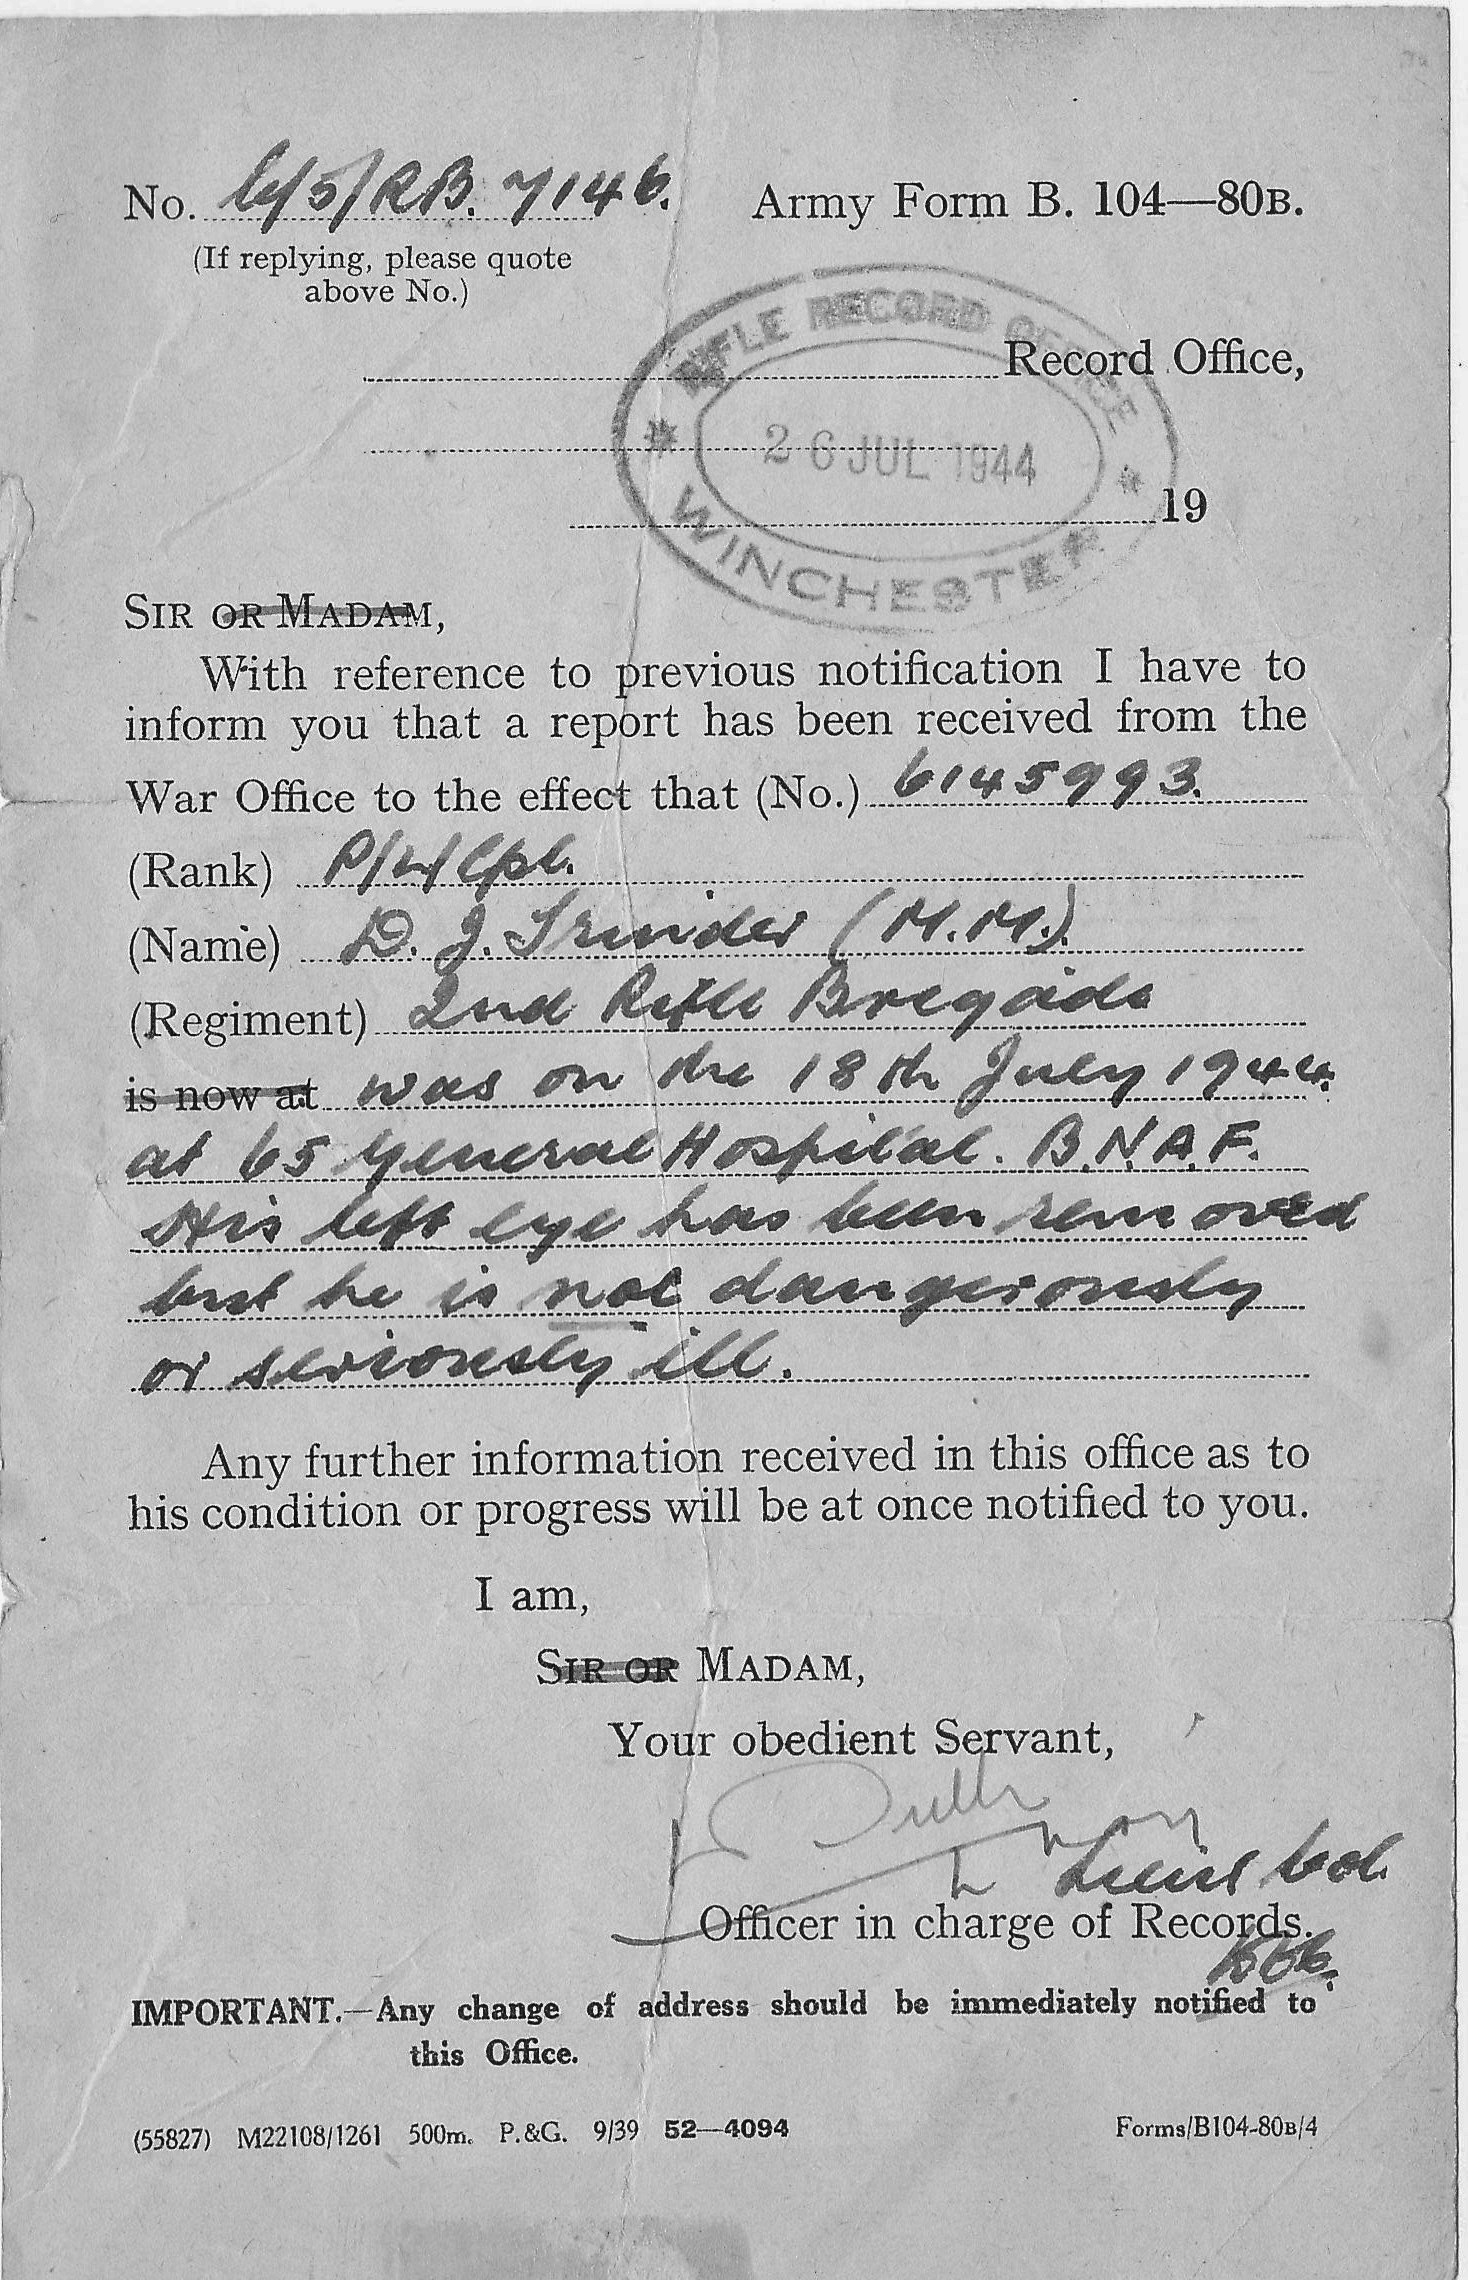 No. C/5/RB. 7146. Army Form B. 104—80B.
(If replying, please quote
above No.)
RIFLE RECORD OFFICE
Record Office,
26 JUL 1944
19
WINCHESTER
SIR OR MADAM,
With reference to previous notification I have to
inform you that a report has been received from the
War Office to the effect that (No.) 6145993.
(Rank) P/A/Cpl.
(Name) D. J. Trinder (M.M.).
(Regiment) 2nd Rifle Brigade
is now at was on the 18th July 1944.
at 65 General Hospital. B.N.A.F.
His left eye has been removed
but he is not dangerously
or seriously ill.
Any further information received in this office as to
his condition or progress will be at once notified to you.
I am,
SIR OR MADAM,
Your obedient Servant,
Lieut Col.
Officer in charge of Records.
IMPORTANT.—Any change of address should be immediately notified to
this Office.
(55827) M22108/1261 500m. P.&G. 9/39 52—4094 Forms/B104-80B/4